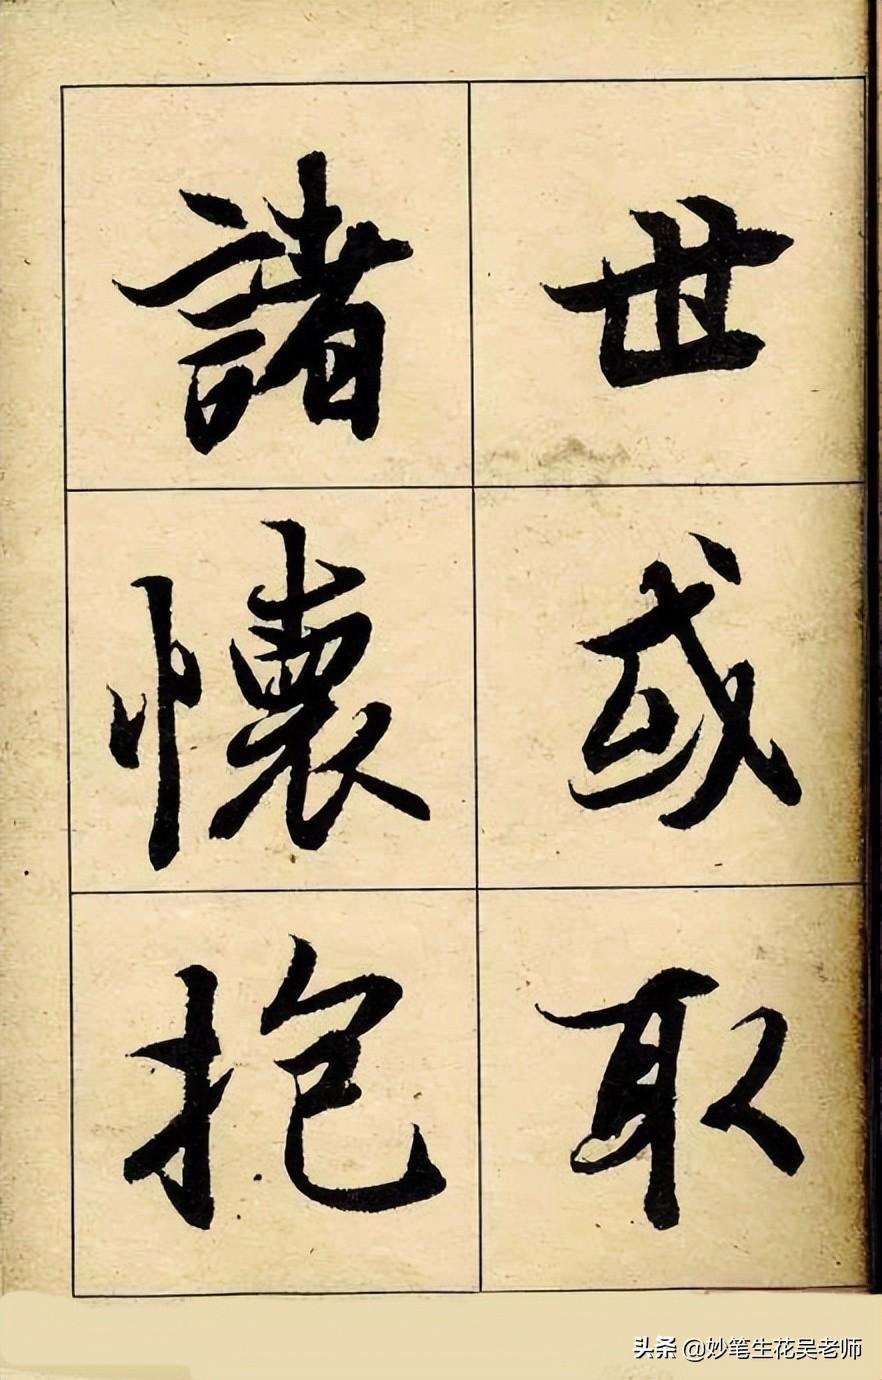 世或取
諸懷抱
头条 @妙笔生花吴老师